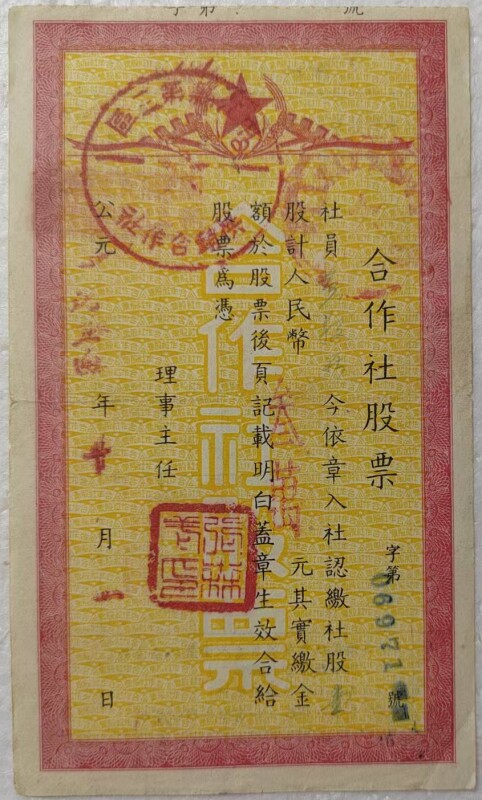 字第 號
合作社股票
字第 06971 號
社員 今依章入社認繳社股壹
股計人民幣 元其實繳金
額於股票後頁記載明白蓋章生效合給
股票為憑
理事主任
公元 年 十 月 一 日
合作社股票
第三區
合作社